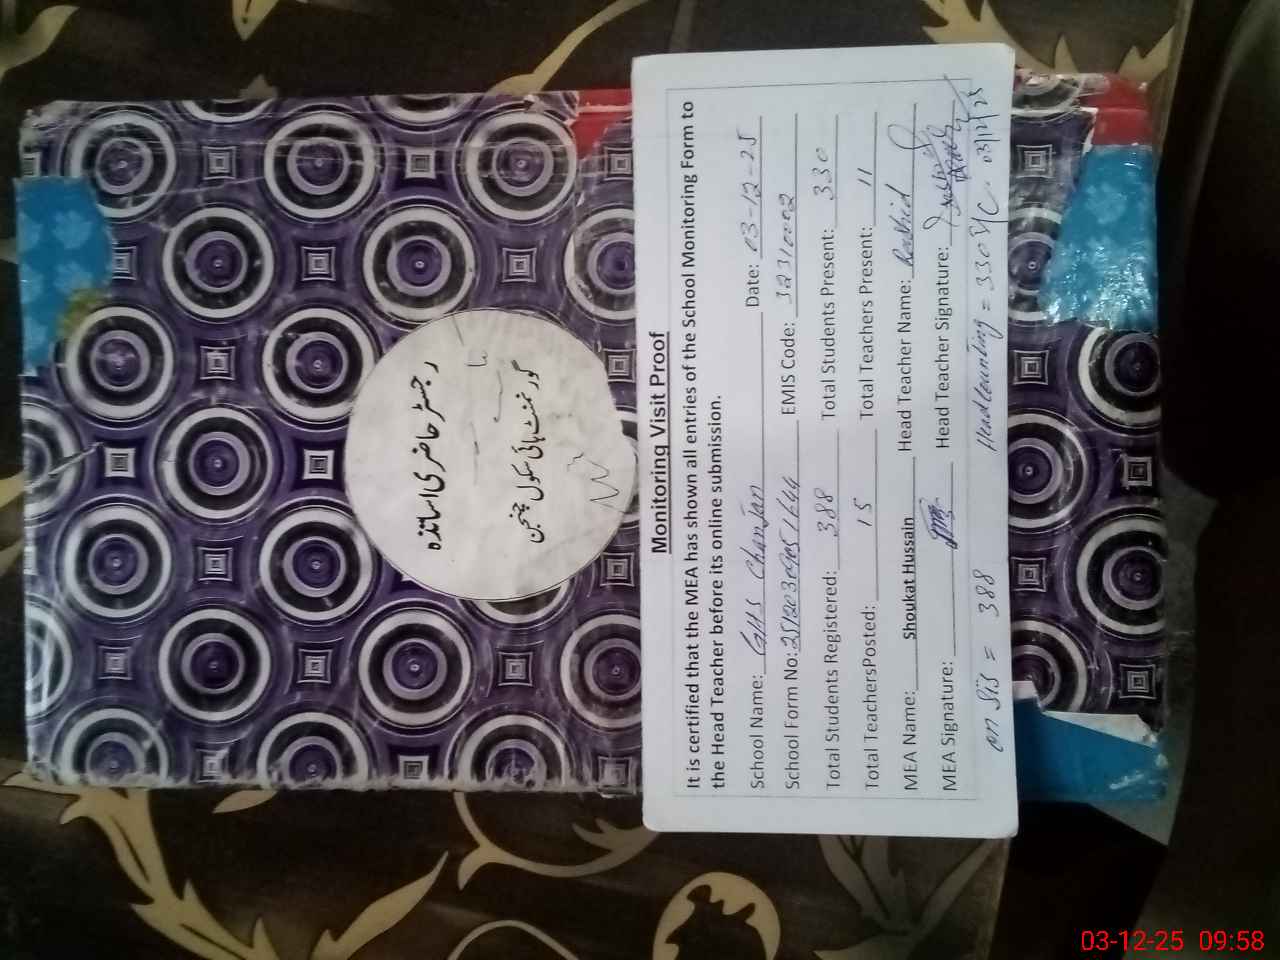 رجسٹر حاضری اساتذہ
گورنمنٹ ہائی سکول چنجن
Monitoring Visit Proof
It is certified that the MEA has shown all entries of the School Monitoring Form to
the Head Teacher before its online submission.
School Name: GHS Chanjan Date: 03-12-25
School Form No: EMIS Code: 32310002
Total Students Registered: 388 Total Students Present: 330
Total TeachersPosted: 15 Total Teachers Present: 11
MEA Name: Shoukat Hussain Head Teacher Name: Rashid
MEA Signature: Head Teacher Signature:
03/12/25
on Sis = 388 Headcounting = 330
03-12-25 09:58